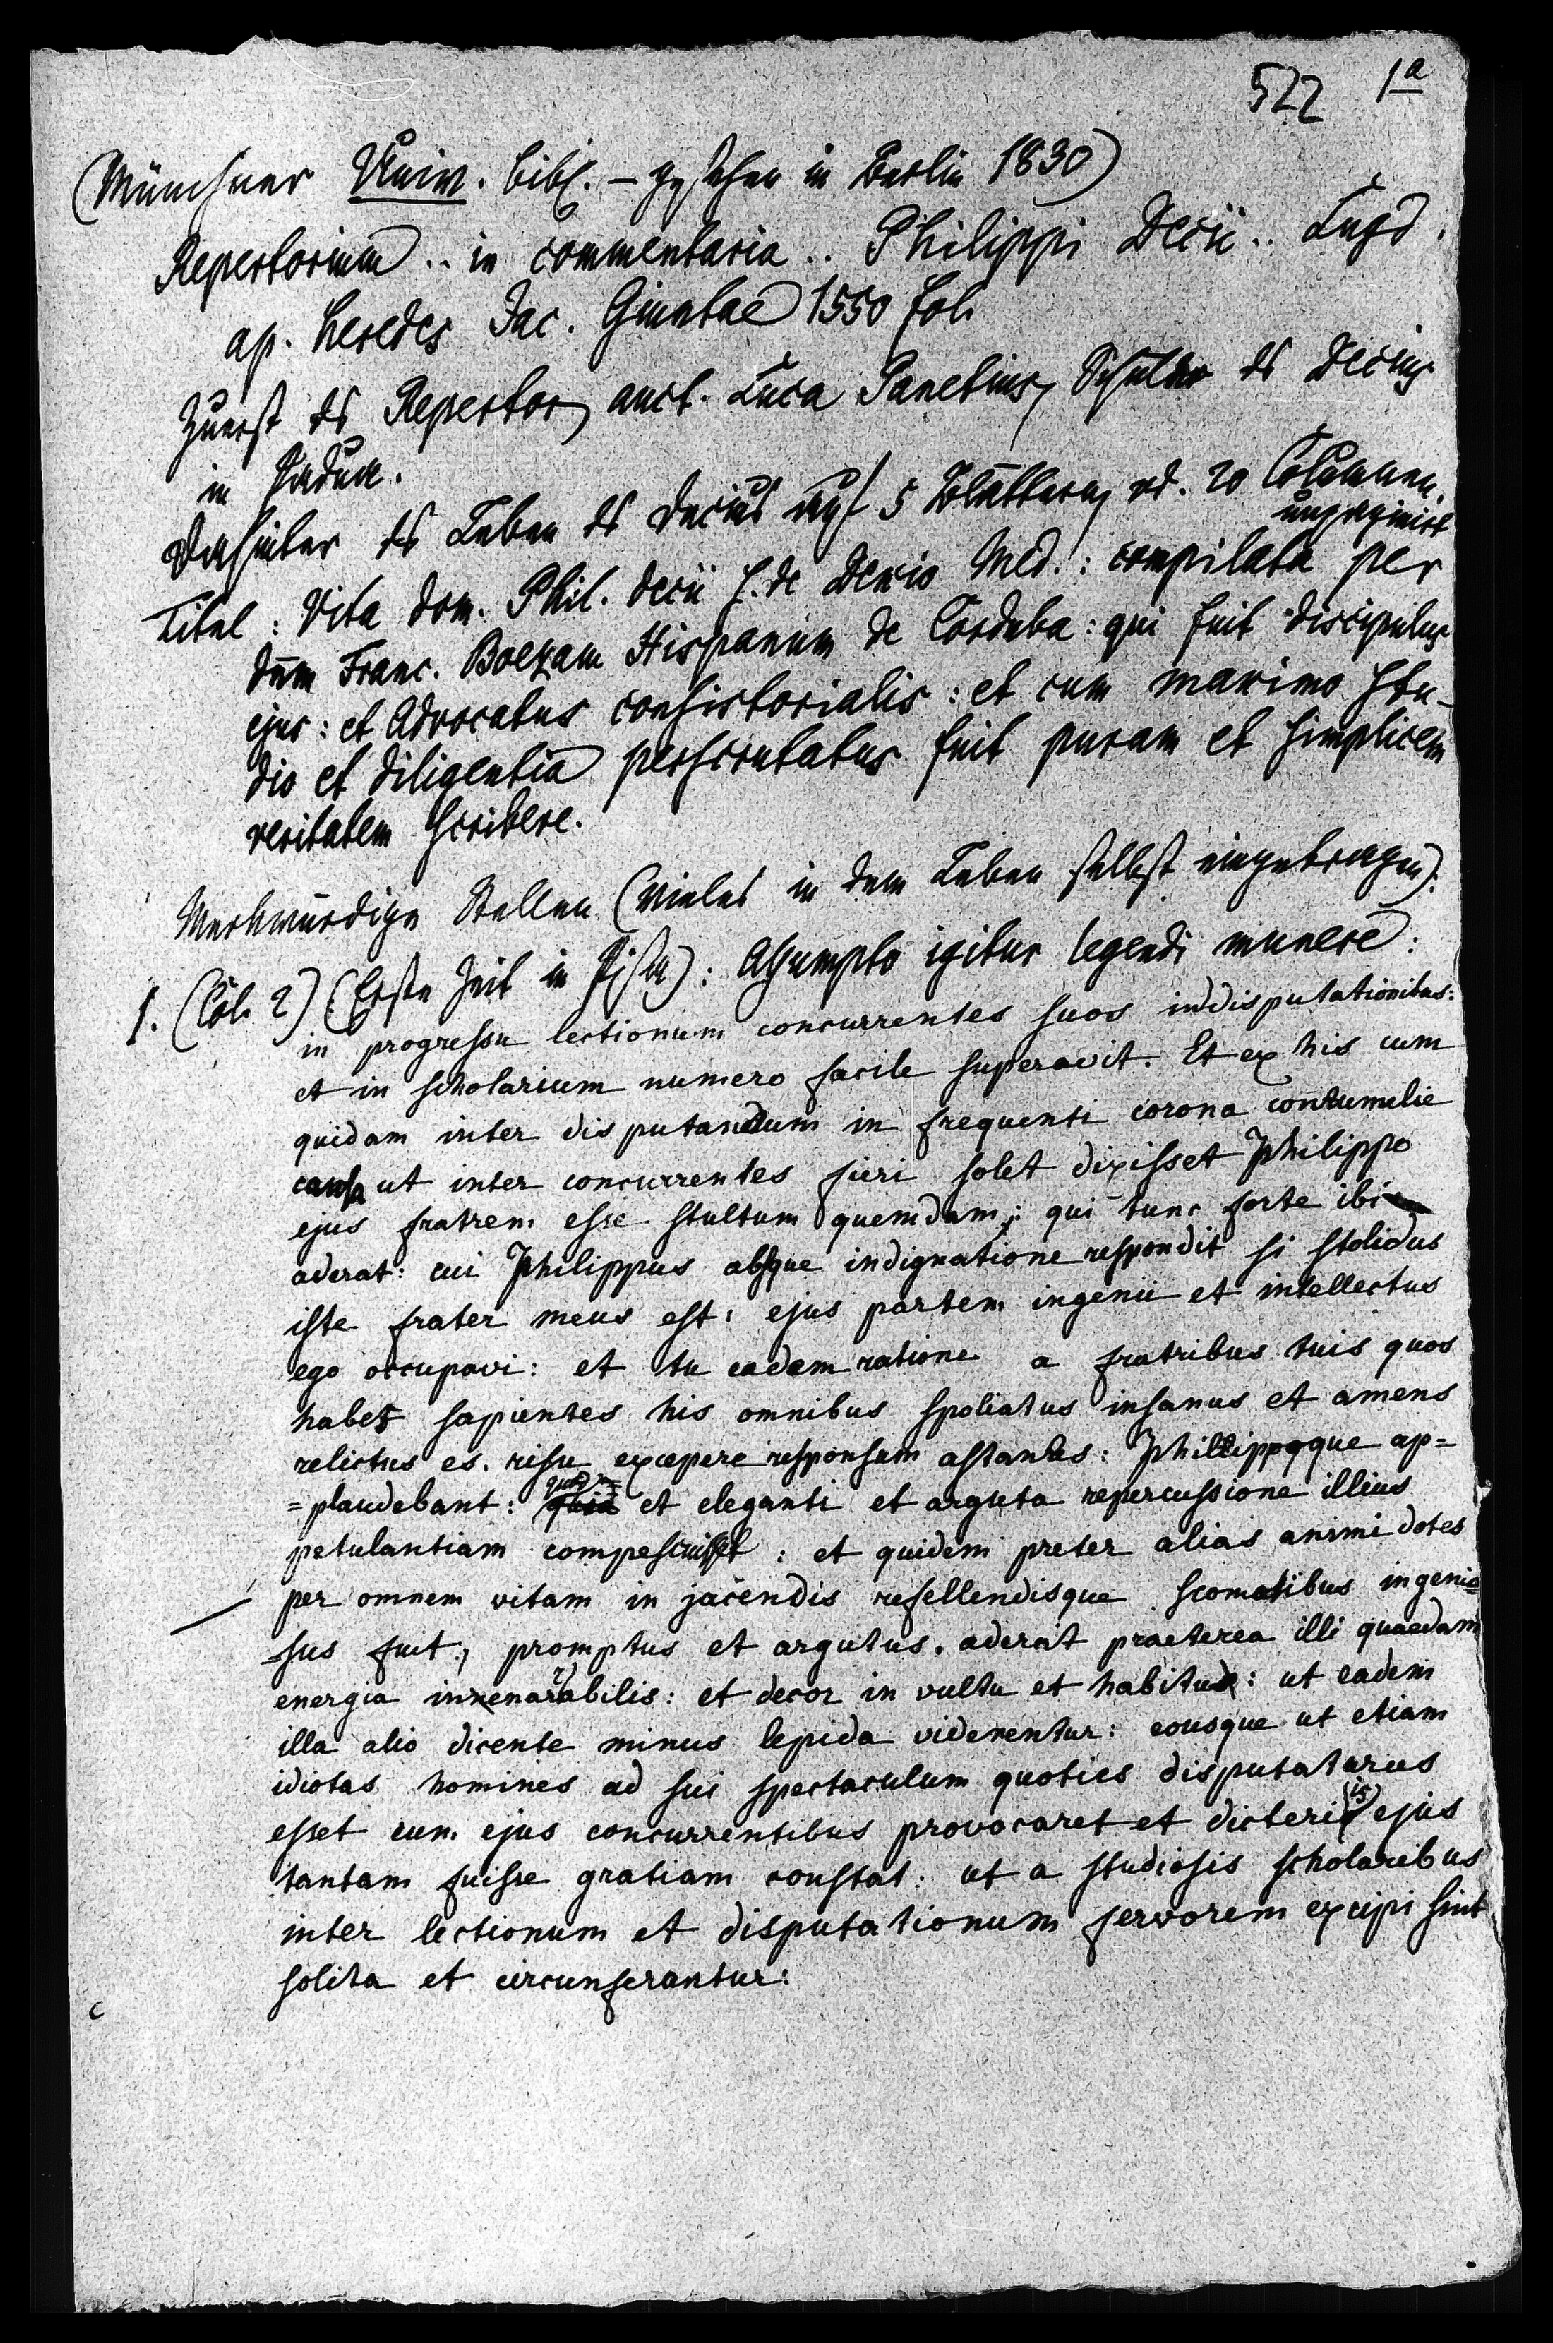 522 1a
(Münchner Univ. bibl. – gesehen in Berlin 1830)
Repertorium .. in commentaria .. Philippi Decii .. Lugd.
ap. heredes Jac. Giuntae 1550 fol.
Zuerst ds Repertor, auct. Luca Panetius, Schüler ds Decius
in Padua.
Dahinter ds Leben ds Decius auf 5 Blättern, od. 20 Columnen.
unpaginirt
Titel: Vita dom. Phil. Decii s. de Decio Med.: compilata per
dnm Franc. Boezam Hispanum de Corduba: qui fuit discipulus
ejus: et Advocatus consistorialis: et cum maximo stu-
dio et diligentia perscrutatus fuit puram et simplicem
veritatem scribere.
Merkwürdige Stellen (vieles in dem Leben selbst eingetragen):
1. (Col. 2) (Erste Zeit in Pisa): Assumpto igitur legendi munere:
in progressu lectionum concurrentes suos in disputationibus:
et in scholarium numero facile superavit. Et ex his cum
quidam inter disputandum in frequenti corona contumelie
causa ut inter concurrentes fieri solet dixisset Philippo
ejus fratrem esse stultum quemdam: qui tunc forte ibi
aderat: cui Philippus absque indignatione respondit si stolidus
iste frater meus est: ejus partem ingenii et intellectus
ego occupavi: et tu eadem ratione a fratribus tuis quos
habes sapientes his omnibus spoliatus insanus et amens
relictus es. risu excepere responsum astantes: Philippoque ap=
=plaudebant: quia et eleganti et arguta repercussione illius
petulantiam compescuisset: et quidem preter alias animi dotes
per omnem vitam in jaciendis refellendisque scomatibus ingenio=
sus fuit, promptus et argutus. aderat praeterea illi quaedam
energia inenarrabilis: et decor in vultu et habitu: ut eadem
illa alio dicente minus lepida viderentur: eousque ut etiam
idiotas homines ad sui spectaculum quoties disputaturus
esset cum ejus concurrentibus provocaret et dicteriis ejus
tantam fuisse gratiam constat: ut a studiosis scholaribus
inter lectionum et disputationum fervorem excipi sint
solita et circunferantur: